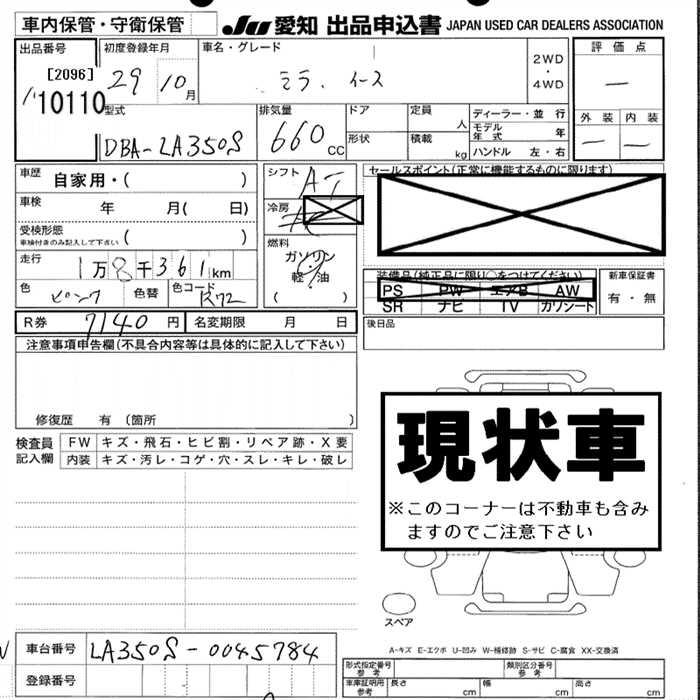 車内保管・守衛保管 JU 愛知 出品申込書 JAPAN USED CAR DEALERS ASSOCIATION
出品番号 初度登録年月 車名・グレード 2WD ・ 4WD 評価点
[2096] 29 10月 ミラ・イース —
10110
型式 排気量 ドア 定員 人 ディーラー・並行 外装 内装
DBA-LA350S 660cc 形状 積載 kg モデル年式 年 — —
ハンドル 左・右
車歴 自家用・( ) シフト AT セールスポイント(正常に機能するものに限ります)
車検 年 月( 日) 冷房
受検形態 車検付きのみ記入して下さい ( )
燃料 ガソリン・軽油 ( )
走行 1万8千361km
装備品(純正品に限り○をつけてください) 新車保証書
色 ピンク 色替 色コード R72
PS PW エアB AW 有・無
SR ナビ TV ガワシート
R券 7140円 名変期限 月 日 後日品
注意事項申告欄(不具合内容等は具体的に記入して下さい)
修復歴 有 (箇所 )
現状車
※このコーナーは不動車も含み
ますのでご注意下さい
検査員記入欄 FW キズ・飛石・ヒビ割・リペア跡・X要
内装 キズ・汚レ・コゲ・穴・スレ・キレ・破レ
スペア
A-キズ E-エクボ U-凹み W-補修跡 S-サビ C-腐食 XX-交換済
車台番号 LA350S-0045784
登録番号
形式指定番号 参考 類別区分番号 参考
車庫証明用 参考 長さ cm 幅 cm 高さ cm